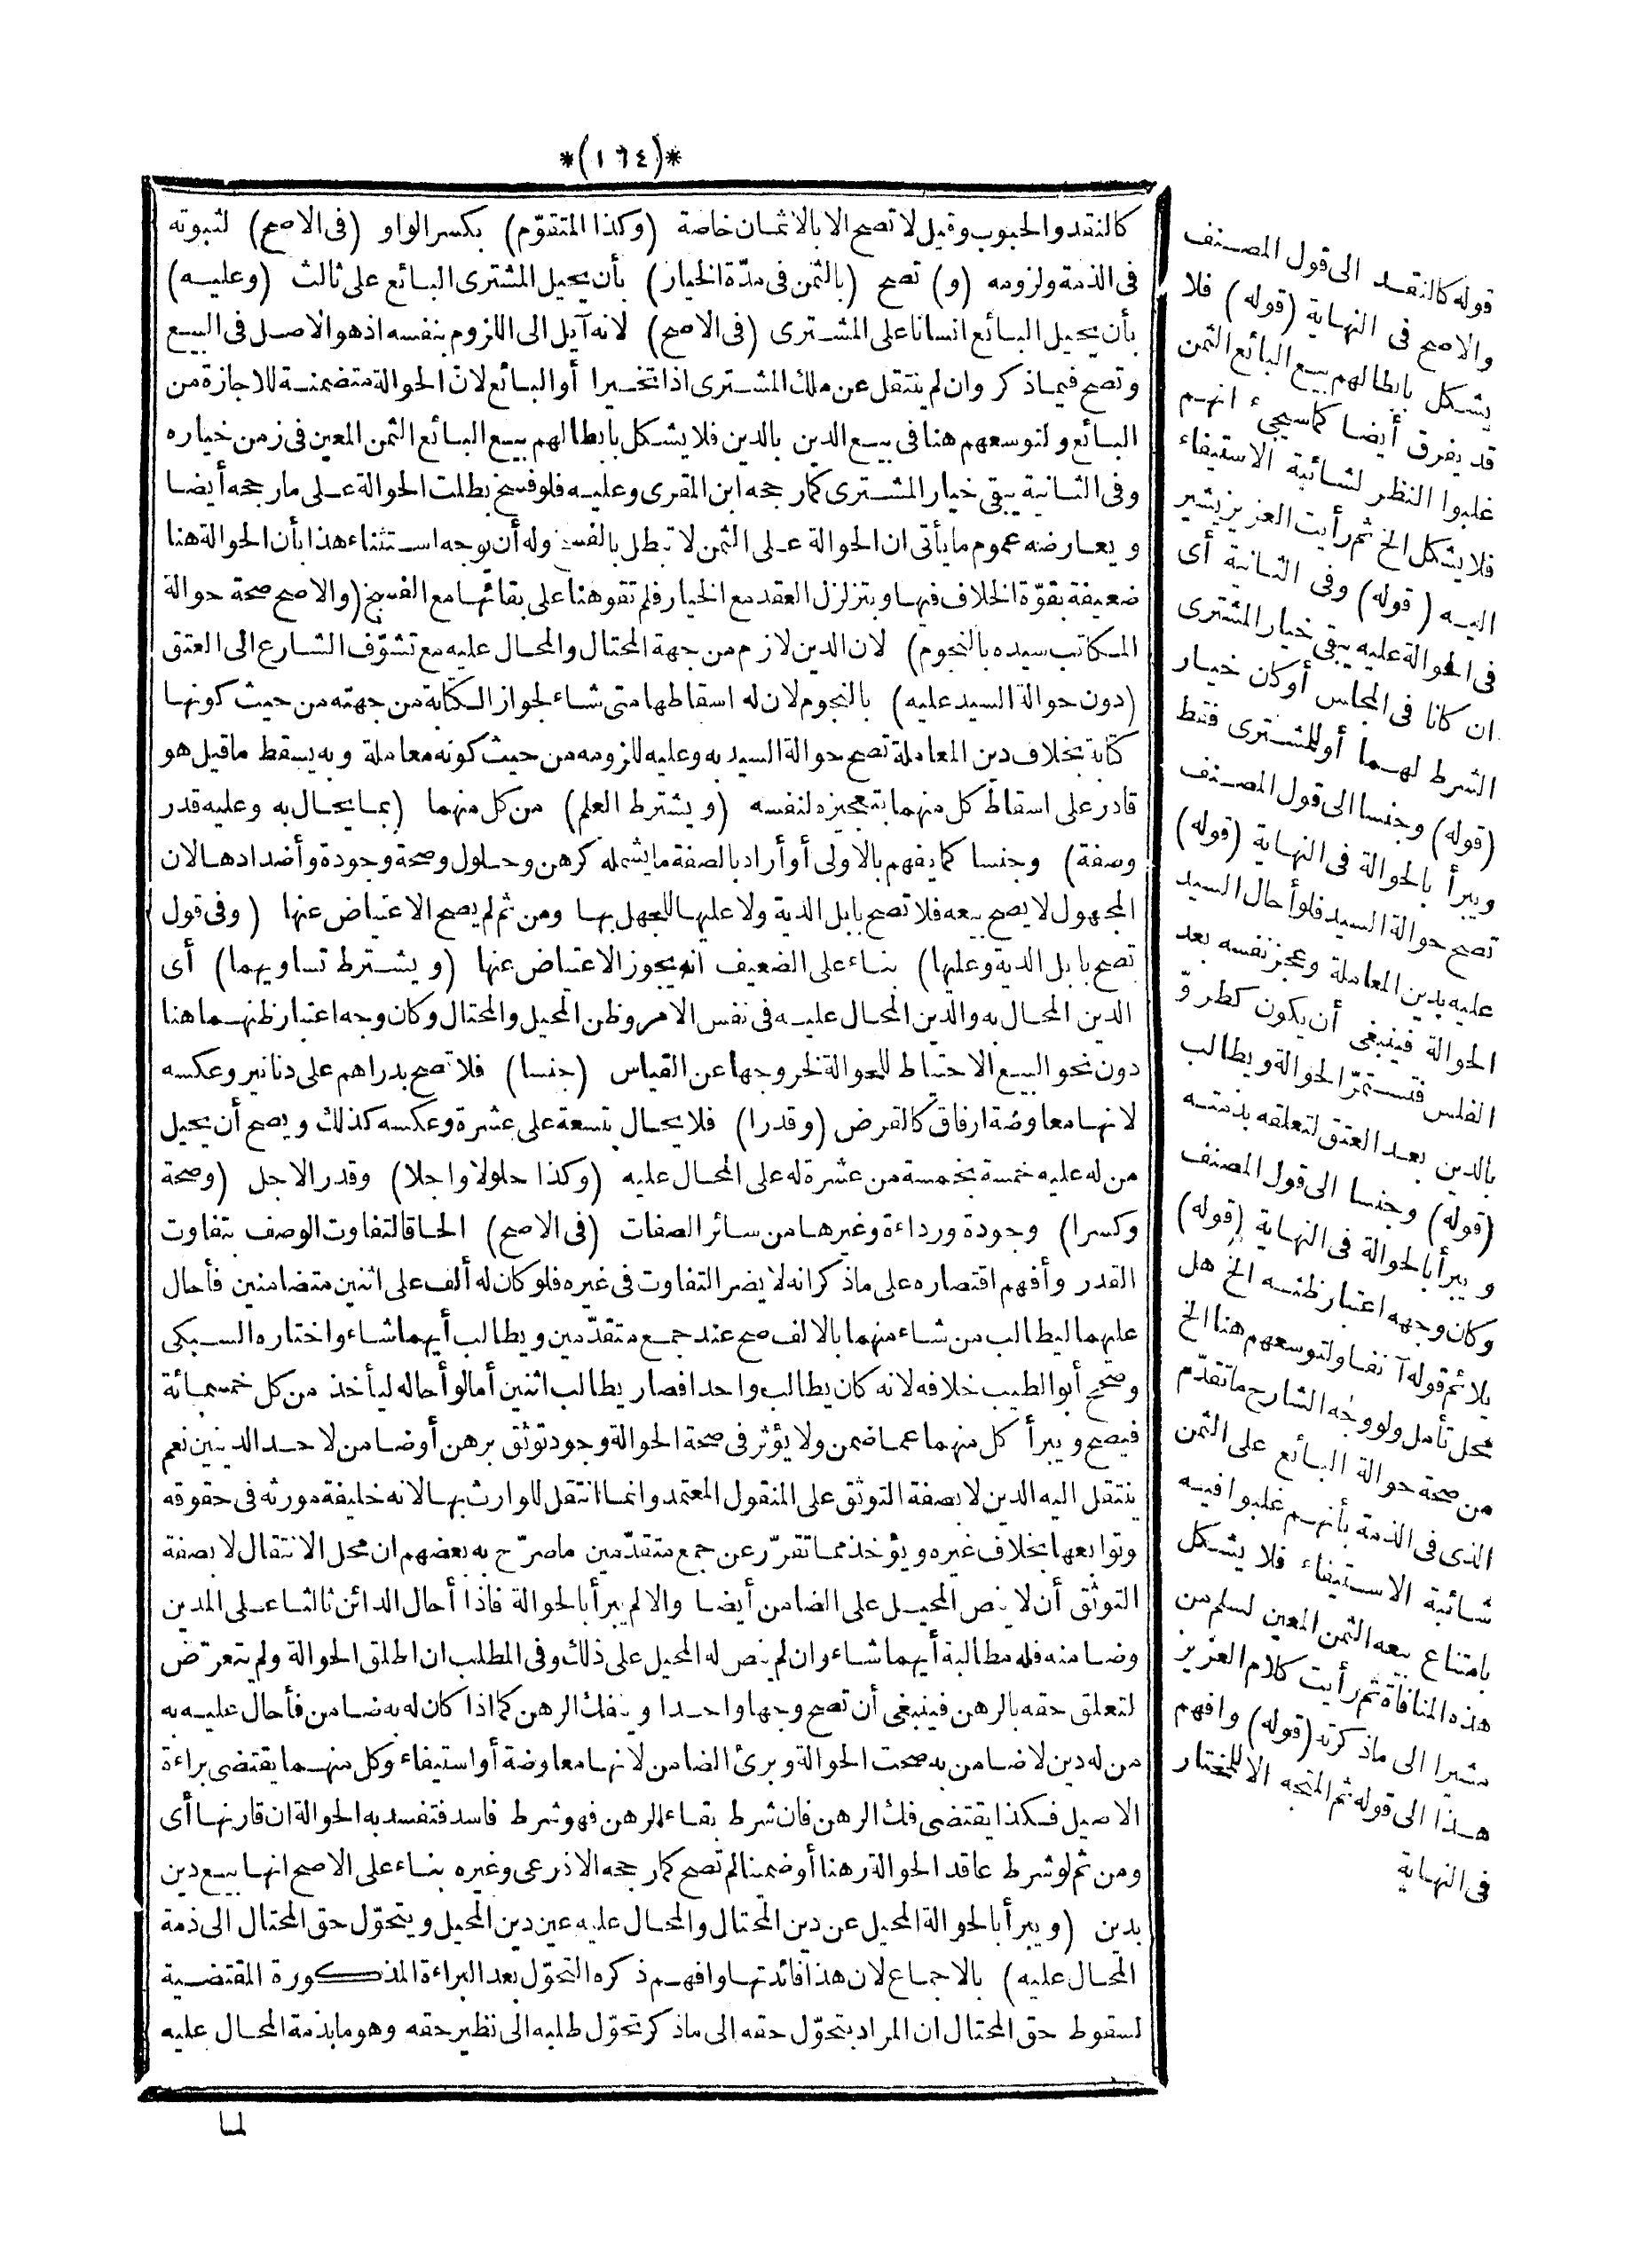 *(١٦٤)*
كالنقد والحبوب وقيل لا تصح الا بالاثمان خاصة (وكذا المتقوّم) بكسر الواو (فى الاصح) لثبوته
فى الذمة ولزومه (و) تصح (بالثمن فى مدّة الخيار) بأن يحيل المشترى البائع على ثالث (وعليه)
بأن يحيل البائع انسانا على المشترى (فى الاصح) لانه آيل الى اللزوم بنفسه اذ هو الاصل فى البيع
وتصح فيما ذكر وان لم ينتقل عن ملك المشترى اذا تخيرا أو البائع لانّ الحوالة متضمنة للاجازة من
البائع ولتوسعهم هنا فى بيع الدين بالدين فلا يشكل بابطالهم بيع البائع الثمن المعين فى زمن خياره
وفى الثانية يبقى خيار المشترى كما رجحه ابن المقرى وعليه فلو فسخ بطلت الحوالة على ما رجحه أيضا
ويعارضه عموم ما يأتى ان الحوالة على الثمن لا تبطل بالفسخ وله أن يوجه استثناء هذا بأن الحوالة هنا
ضعيفة بقوّة الخلاف فيها وبتزلزل العقد مع الخيار فلم تقو هنا على بقائها مع الفسخ (والاصح صحة حوالة
المكاتب سيده بالنجوم) لان الدين لازم من جهة المحتال والمحال عليه مع تشوّف الشارع الى العتق
(دون حوالة السيد عليه) بالنجوم لان له اسقاطها متى شاء لجواز الكتابة من جهته من حيث كونها
كتابة بخلاف دين المعاملة تصح حوالة السيد به وعليه للزومه من حيث كونه معاملة وبه يسقط ما قيل هو
قادر على اسقاط كل منهما بتعجيزه لنفسه (ويشترط العلم) من كل منهما (بما يحال به وعليه قدر
وصفة) وجنسا كما يفهم بالاولى أو أراد بالصفة ما يشمله كرهن وحلول وصحة وجودة وأضدادها لان
المجهول لا يصح بيعه فلا تصح بابل الدية ولا عليها للجهل بها ومن ثم لم يصح الاعتياض عنها (وفى قول
تصح بابل الدية وعليها) بناء على الضعيف انه يجوز الاعتياض عنها (ويشترط تساويهما) أى
الدين المحال به والدين المحال عليه فى نفس الامر وظن المحيل والمحتال وكان وجه اعتبار ظنهما هنا
دون نحو البيع الاحتياط للحوالة لخروجها عن القياس (جنسا) فلا تصح بدراهم على دنانير وعكسه
لانها معاوضة ارفاق كالقرض (وقدرا) فلا يحال بتسعة على عشرة وعكسه كذلك ويصح أن يحيل
من له عليه خمسة بخمسة من عشرة له على المحال عليه (وكذا حلولا واجلا) وقدر الاجل (وصحة
وكسرا) وجودة ورداءة وغيرها من سائر الصفات (فى الاصح) الحاقا لتفاوت الوصف بتفاوت
القدر وأفهم اقتصاره على ما ذكر انه لا يضر التفاوت فى غيره فلو كان له ألف على اثنين متضامنين فأحال
عليهما ليطالب من شاء منهما بالالف صح عند جمع متقدّمين ويطالب أيهما شاء واختاره السبكى
وصحح أبو الطيب خلافه لانه كان يطالب واحدا فصار يطالب اثنين أما لو أحاله ليأخذ من كل خمسمائة
فيصح ويبرأ كل منهما عما ضمن ولا يؤثر فى صحة الحوالة وجود توثق برهن أو ضامن لاحد الدينين نعم
ينتقل اليه الدين لا بصفة التوثق على المنقول المعتمد وانما انتقل للوارث بها لانه خليفة مورثه فى حقوقه
وتوابعها بخلاف غيره ويؤخذ مما تقرّر عن جمع متقدّمين ما صرّح به بعضهم ان محل الانتقال لا بصفة
التوثق أن لا ينص المحيل على الضامن أيضا والا لم يبرأ بالحوالة فاذا أحال الدائن ثالثا على المدين
وضامنه فله مطالبة أيهما شاء وان لم ينص له المحيل على ذلك وفى المطلب ان اطلق الحوالة ولم يتعرّض
لتعلق حقه بالرهن فينبغى أن تصح وجها واحدا وينفك الرهن كما اذا كان له به ضامن فأحال عليه به
من له دين لا ضامن به صحت الحوالة وبرئ الضامن لانها معاوضة أو استيفاء وكل منهما يقتضى براءة
الاصيل فكذا يقتضى فك الرهن فان شرط بقاء الرهن فهو شرط فاسد فتفسد به الحوالة ان قارنها أى
ومن ثم لو شرط عاقد الحوالة رهنا أو ضمينا لم تصح كما رجحه الاذرعى وغيره بناء على الاصح انها بيع دين
بدين (ويبرأ بالحوالة المحيل عن دين المحتال والمحال عليه عن دين المحيل ويتحوّل حق المحتال الى ذمة
المحال عليه) بالاجماع لان هذا فائدتها وافهم ذكره التحوّل بعد البراءة المذكورة المقتضية
لسقوط حق المحتال ان المراد بتحوّل حقه الى ما ذكر تحوّل طلبه الى نظير حقه وهو ما بذمة المحال عليه
لما
قوله كالنقد الى قول المصنف
والاصح فى النهاية (قوله) فلا
يشكل بابطالهم بيع البائع الثمن
قد يفرق أيضا كما سيجىء انهم
غلبوا النظر لشائبة الاستيفاء
فلا يشكل الخ ثم رأيت العزيز يشير
اليه (قوله) وفى الثانية أى
فى الحوالة عليه يبقى خيار المشترى
ان كانا فى المجلس أو كان خيار
الشرط لهما أو للمشترى فقط
(قوله) وجنسا الى قول المصنف
ويبرأ بالحوالة فى النهاية (قوله)
تصح حوالة السيد فلو أحال السيد
عليه بدين المعاملة وعجز نفسه بعد
الحوالة فينبغى أن يكون كطروّ
الفلس فتستمرّ الحوالة ويطالب
بالدين بعد العتق لتعلقه بذمته
(قوله) وجنسا الى قول المصنف
ويبرأ بالحوالة فى النهاية (قوله)
وكان وجهه اعتبار ظنه الخ هل
يلائم قوله آنفا ولتوسعهم هنا الخ
محل تأمل ولو وجه الشارح ما تقدّم
من صحة حوالة البائع على الثمن
الذى فى الذمة بأنهم غلبوا فيه
شائبة الاستيفاء فلا يشكل
بامتناع بيعه الثمن المعين لسلم من
هذه المنافاة ثم رأيت كلام العزيز
مشيرا الى ما ذكرته (قوله) وافهم
هذا الى قوله ثم المتجه الا للمختار
فى النهاية